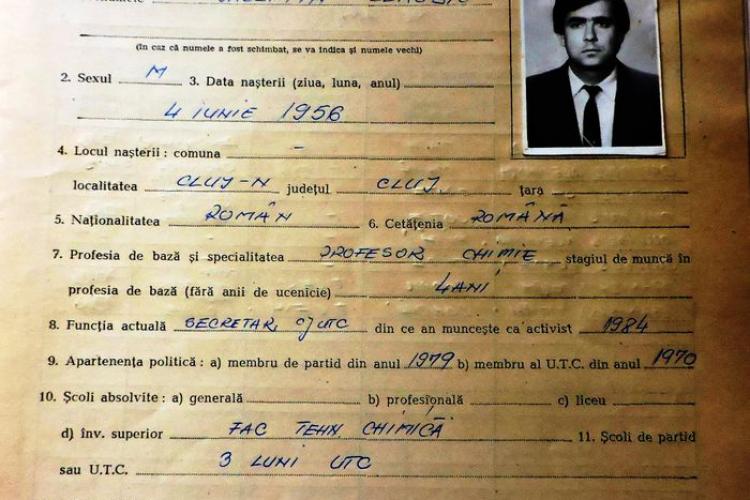 (în caz că numele a fost schimbat, se va indica și numele vechi)
2. Sexul M 3. Data nașterii (ziua, luna, anul)
4 IUNIE 1956
4. Locul nașterii : comuna -
localitatea CLUJ-N județul CLUJ țara
5. Naționalitatea ROMÂN 6. Cetățenia ROMÂNĂ
7. Profesia de bază și specialitatea PROFESOR CHIMIE stagiul de muncă în
profesia de bază (fără anii de ucenicie) 4 ANI
8. Funcția actuală SECRETAR CJ UTC din ce an muncește ca activist 1984
9. Apartenența politică : a) membru de partid din anul 1979 b) membru al U.T.C. din anul 1970
10. Școli absolvite : a) generală b) profesională c) liceu
d) înv. superior FAC TEHN. CHIMICĂ 11. Școli de partid
sau U.T.C. 3 LUNI UTC